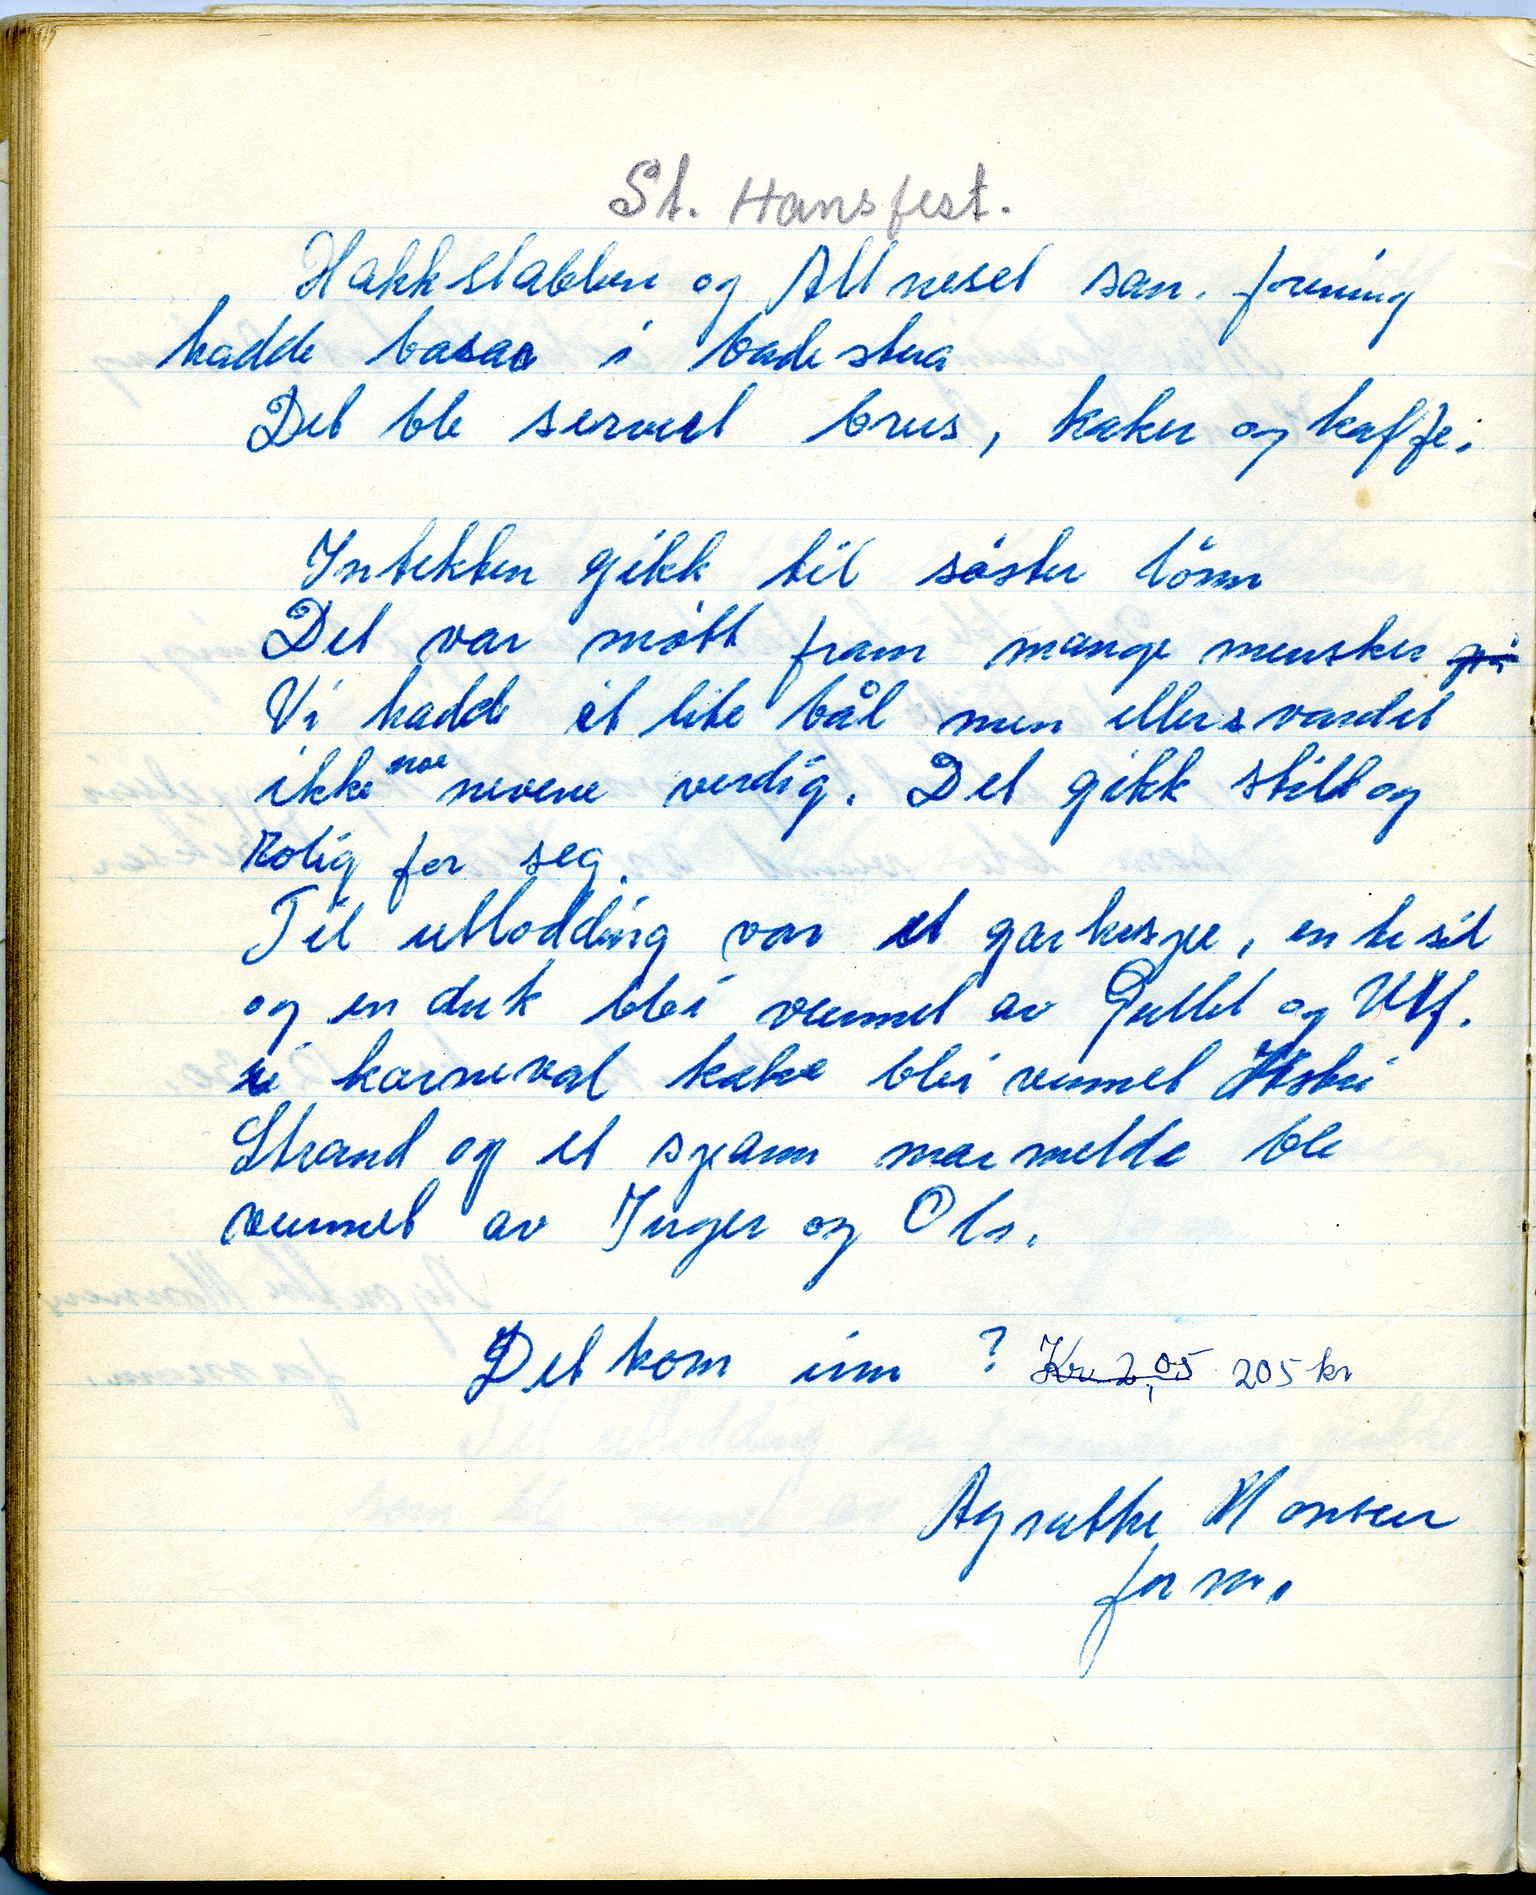 St. Hansfest.
Hakkstabben og Altneset san. forening
hadde basar i badestua
Det ble servert brus, kaker og kaffe.
Intekten gikk til søster lönn
Det var møtt fram mange mensker
Vi hadde et lite bål men ellers vardet
ikke noe nevene verdig. Det gikk stilt og
rolig for seg.
Til utlodding var et garkespe, en te sil
og en duk blei vunnet av Gullet og Ulf.
ei karneval kake blei vunnet
Strand og et spann marmelde ble
vunnet av Inger og Ole.
Det kom inn ? Kr. 2,05 205 kr
Agnethe Hansen
form.